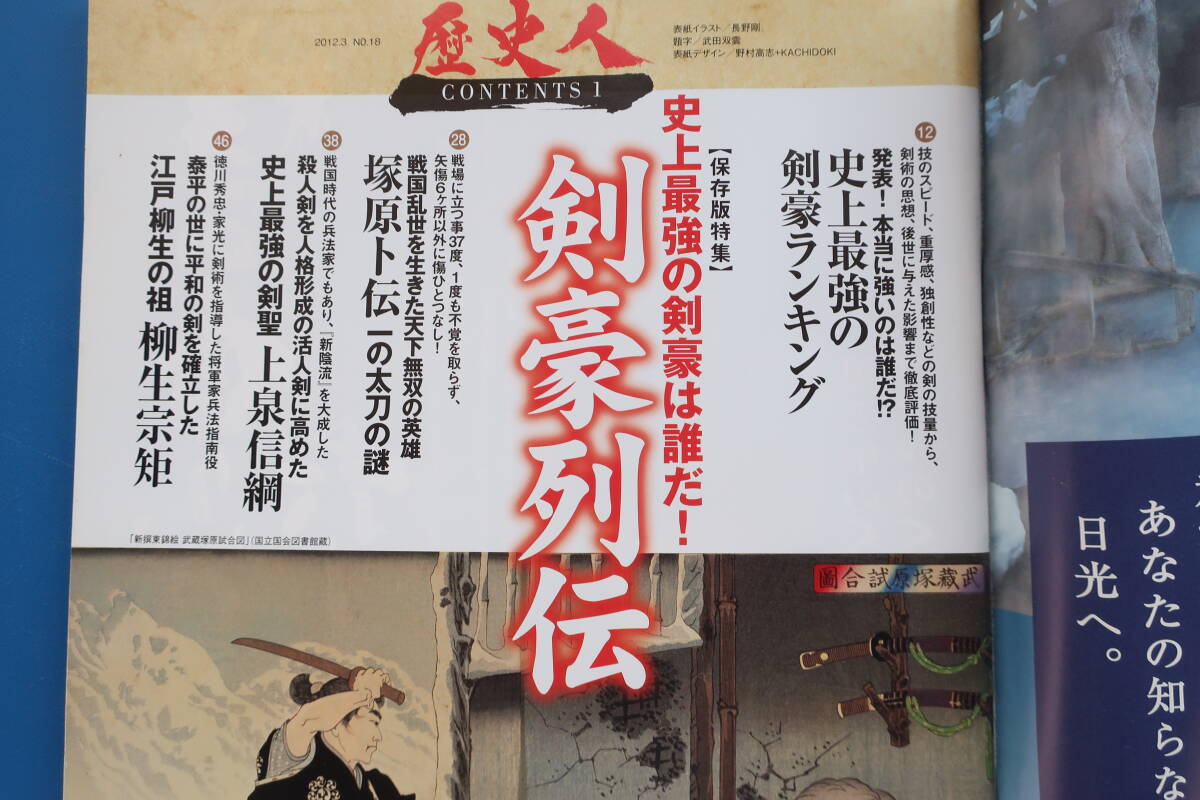 2012.3 NO.18
歴史人
CONTENTS 1
表紙イラスト／長野剛
題字／武田双雲
表紙デザイン／野村高志+KACHIDOKI
12
技のスピード、重厚感、独創性などの剣の技量から、
剣術の思想、後世に与えた影響まで徹底評価！
発表！本当に強いのは誰だ!?
史上最強の
剣豪ランキング
【保存版特集】
史上最強の剣豪は誰だ！
剣豪列伝
28
戦場に立つ事37度、1度も不覚を取らず、
矢傷6ヶ所以外に傷ひとつなし！
戦国乱世を生きた天下無双の英雄
塚原卜伝 一の太刀の謎
38
戦国時代の兵法家でもあり、『新陰流』を大成した
殺人剣を人格形成の活人剣に高めた
史上最強の剣聖 上泉信綱
46
徳川秀忠・家光に剣術を指導した将軍家兵法指南役
泰平の世に平和の剣を確立した
江戸柳生の祖 柳生宗矩
「新撰東錦絵 武蔵塚原試合図」（国立国会図書館蔵）
武藏塚原試合圖
あなたの知らな
日光へ。